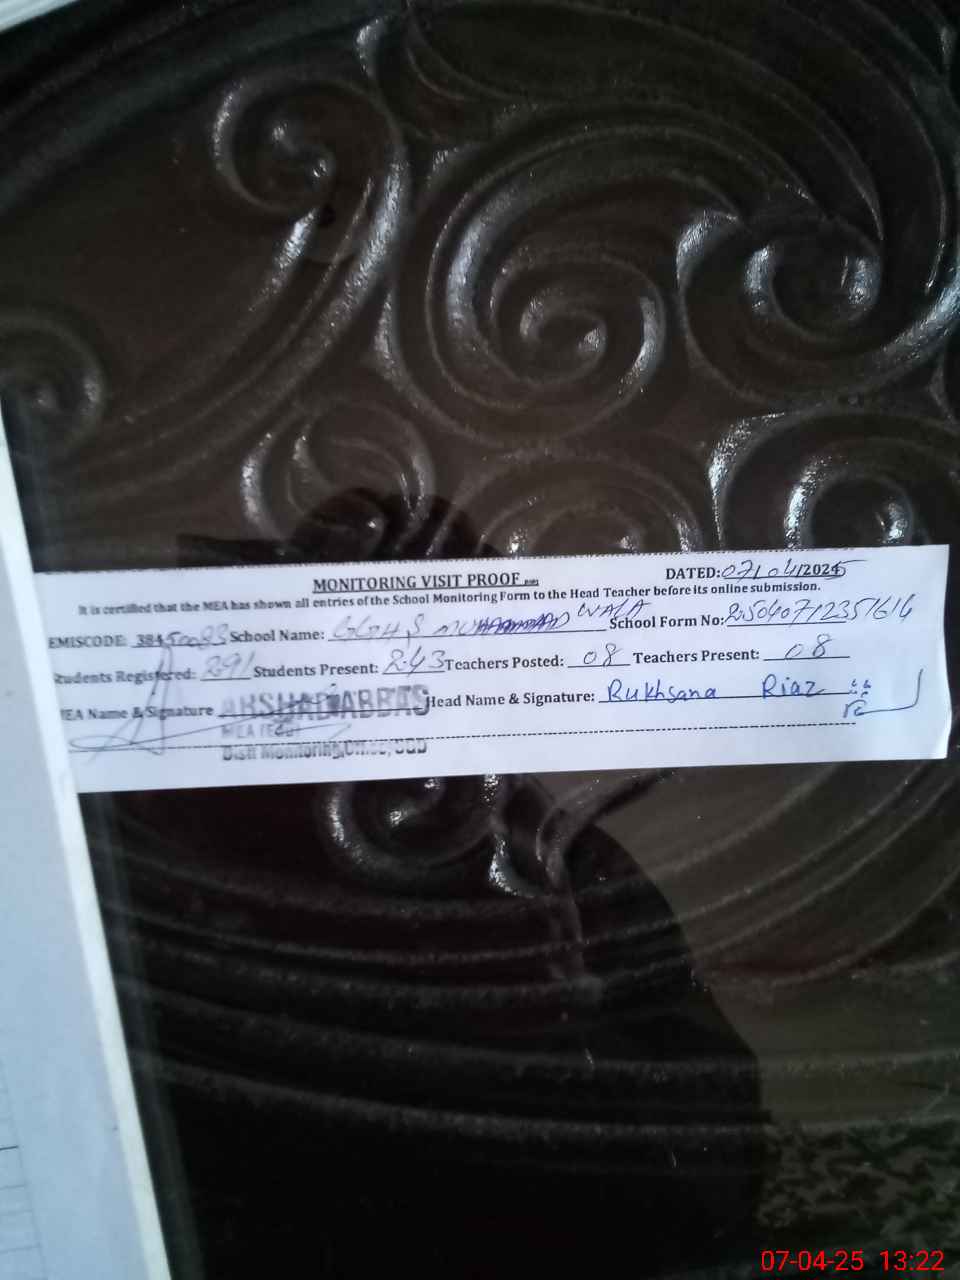 MONITORING VISIT PROOF
DATED: 07/04/2025
It is certified that the MEA has shown all entries of the School Monitoring Form to the Head Teacher before its online submission.
EMISCODE: 38450083 School Name: GGHS MUHAMMAD WALA School Form No: 25040712351614
Students Registered: 291 Students Present: 243 Teachers Posted: 08 Teachers Present: 08
MEA Name & Signature ARSHAD ABBAS Head Name & Signature: Rukhsana Riaz
Distt Monitoring Office, SGD
07-04-25 13:22